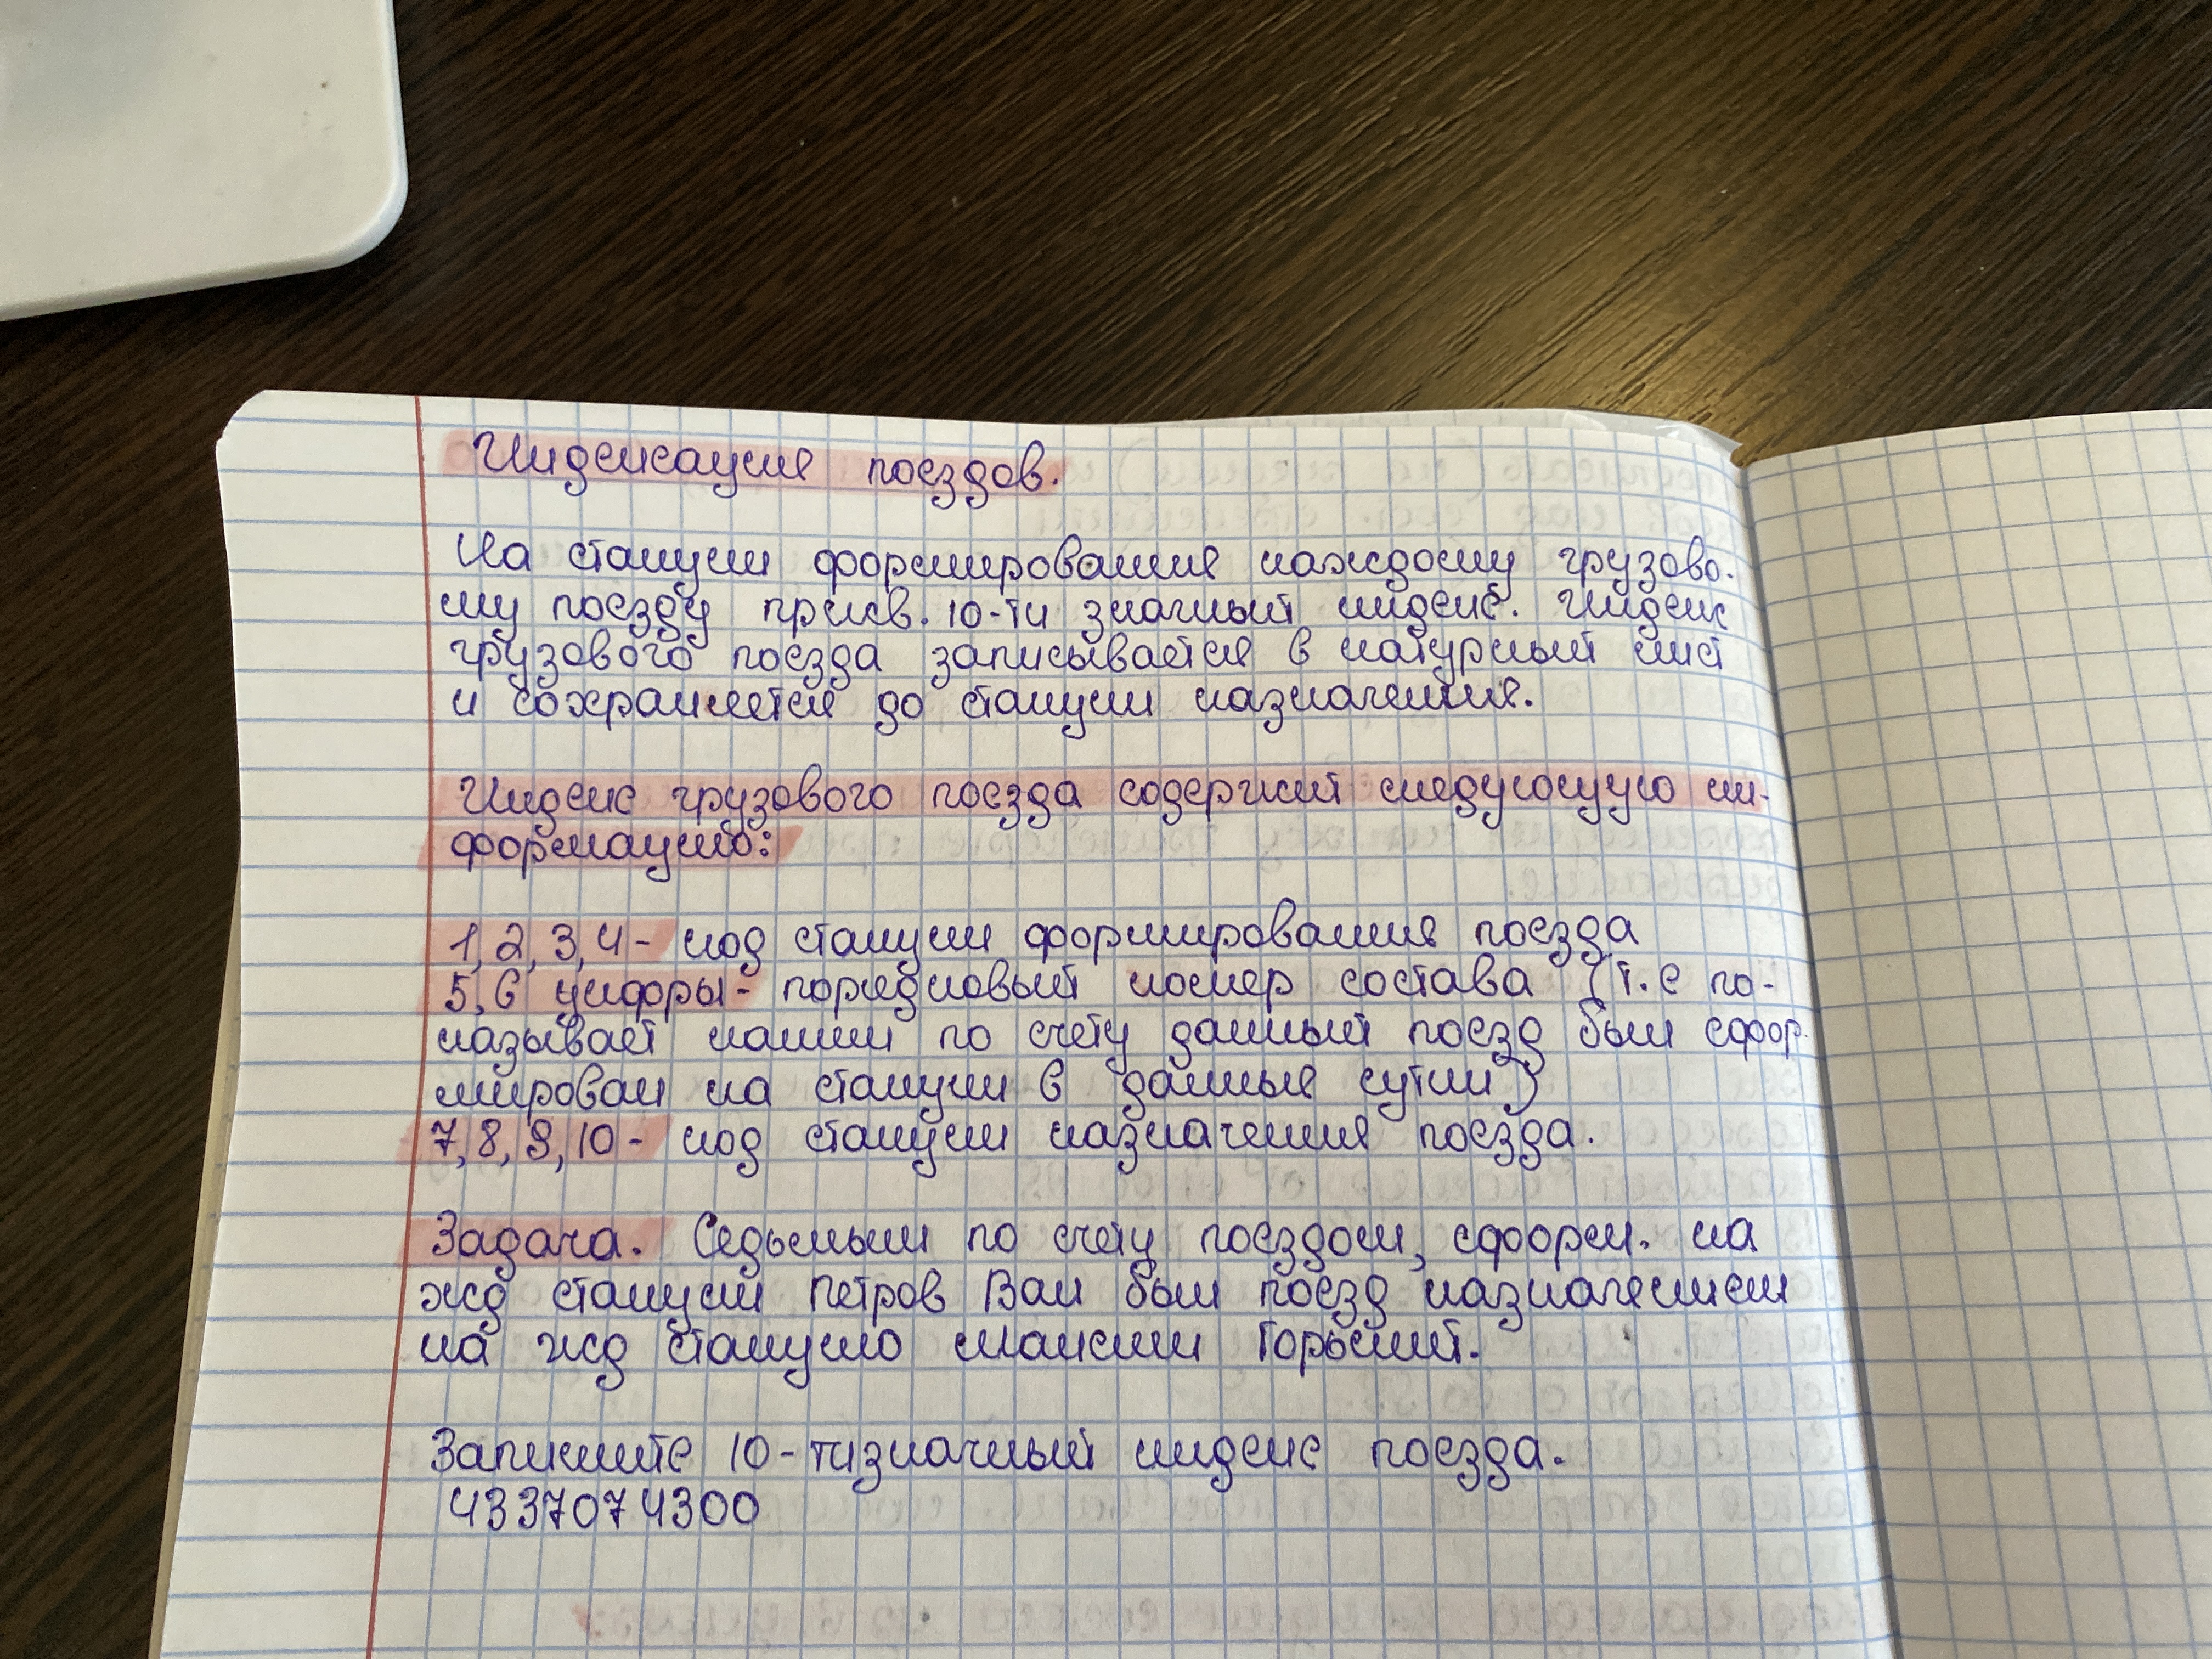 Индексация поездов.
На станции формирования каждому грузово-
му поезду присв. 10-ти значный индекс. Индекс
грузового поезда записывается в натурный лист
и сохраняется до станции назначения.
Индекс грузового поезда содержит следующую ин-
формацию:
1, 2, 3, 4 - код станции формирования поезда
5, 6 цифры - порядковый номер состава (т.е по-
казывает каким по счету данный поезд был сфор-
мирован на станции в данные сутки)
7, 8, 9, 10 - код станции назначения поезда.
Задача. Седьмым по счету поездом, сформ. на
жд станции Петров Вал был поезд назначением
на жд станцию Максим Горький.
Запишите 10-тизначный индекс поезда.
4337074300